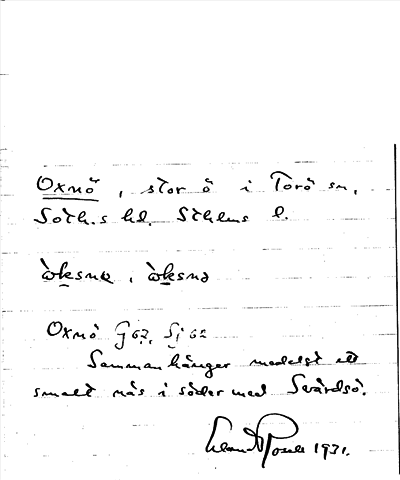 Oxnö, stor ö i Torö sn,
Soth.s hd. Sthlms l.
ò̀ksnɐ, ò̀ksnə
Oxnö G 62, Sj 62
Sammanhänger medelst ett
smalt näs i söder med Svärdsö.
1931.